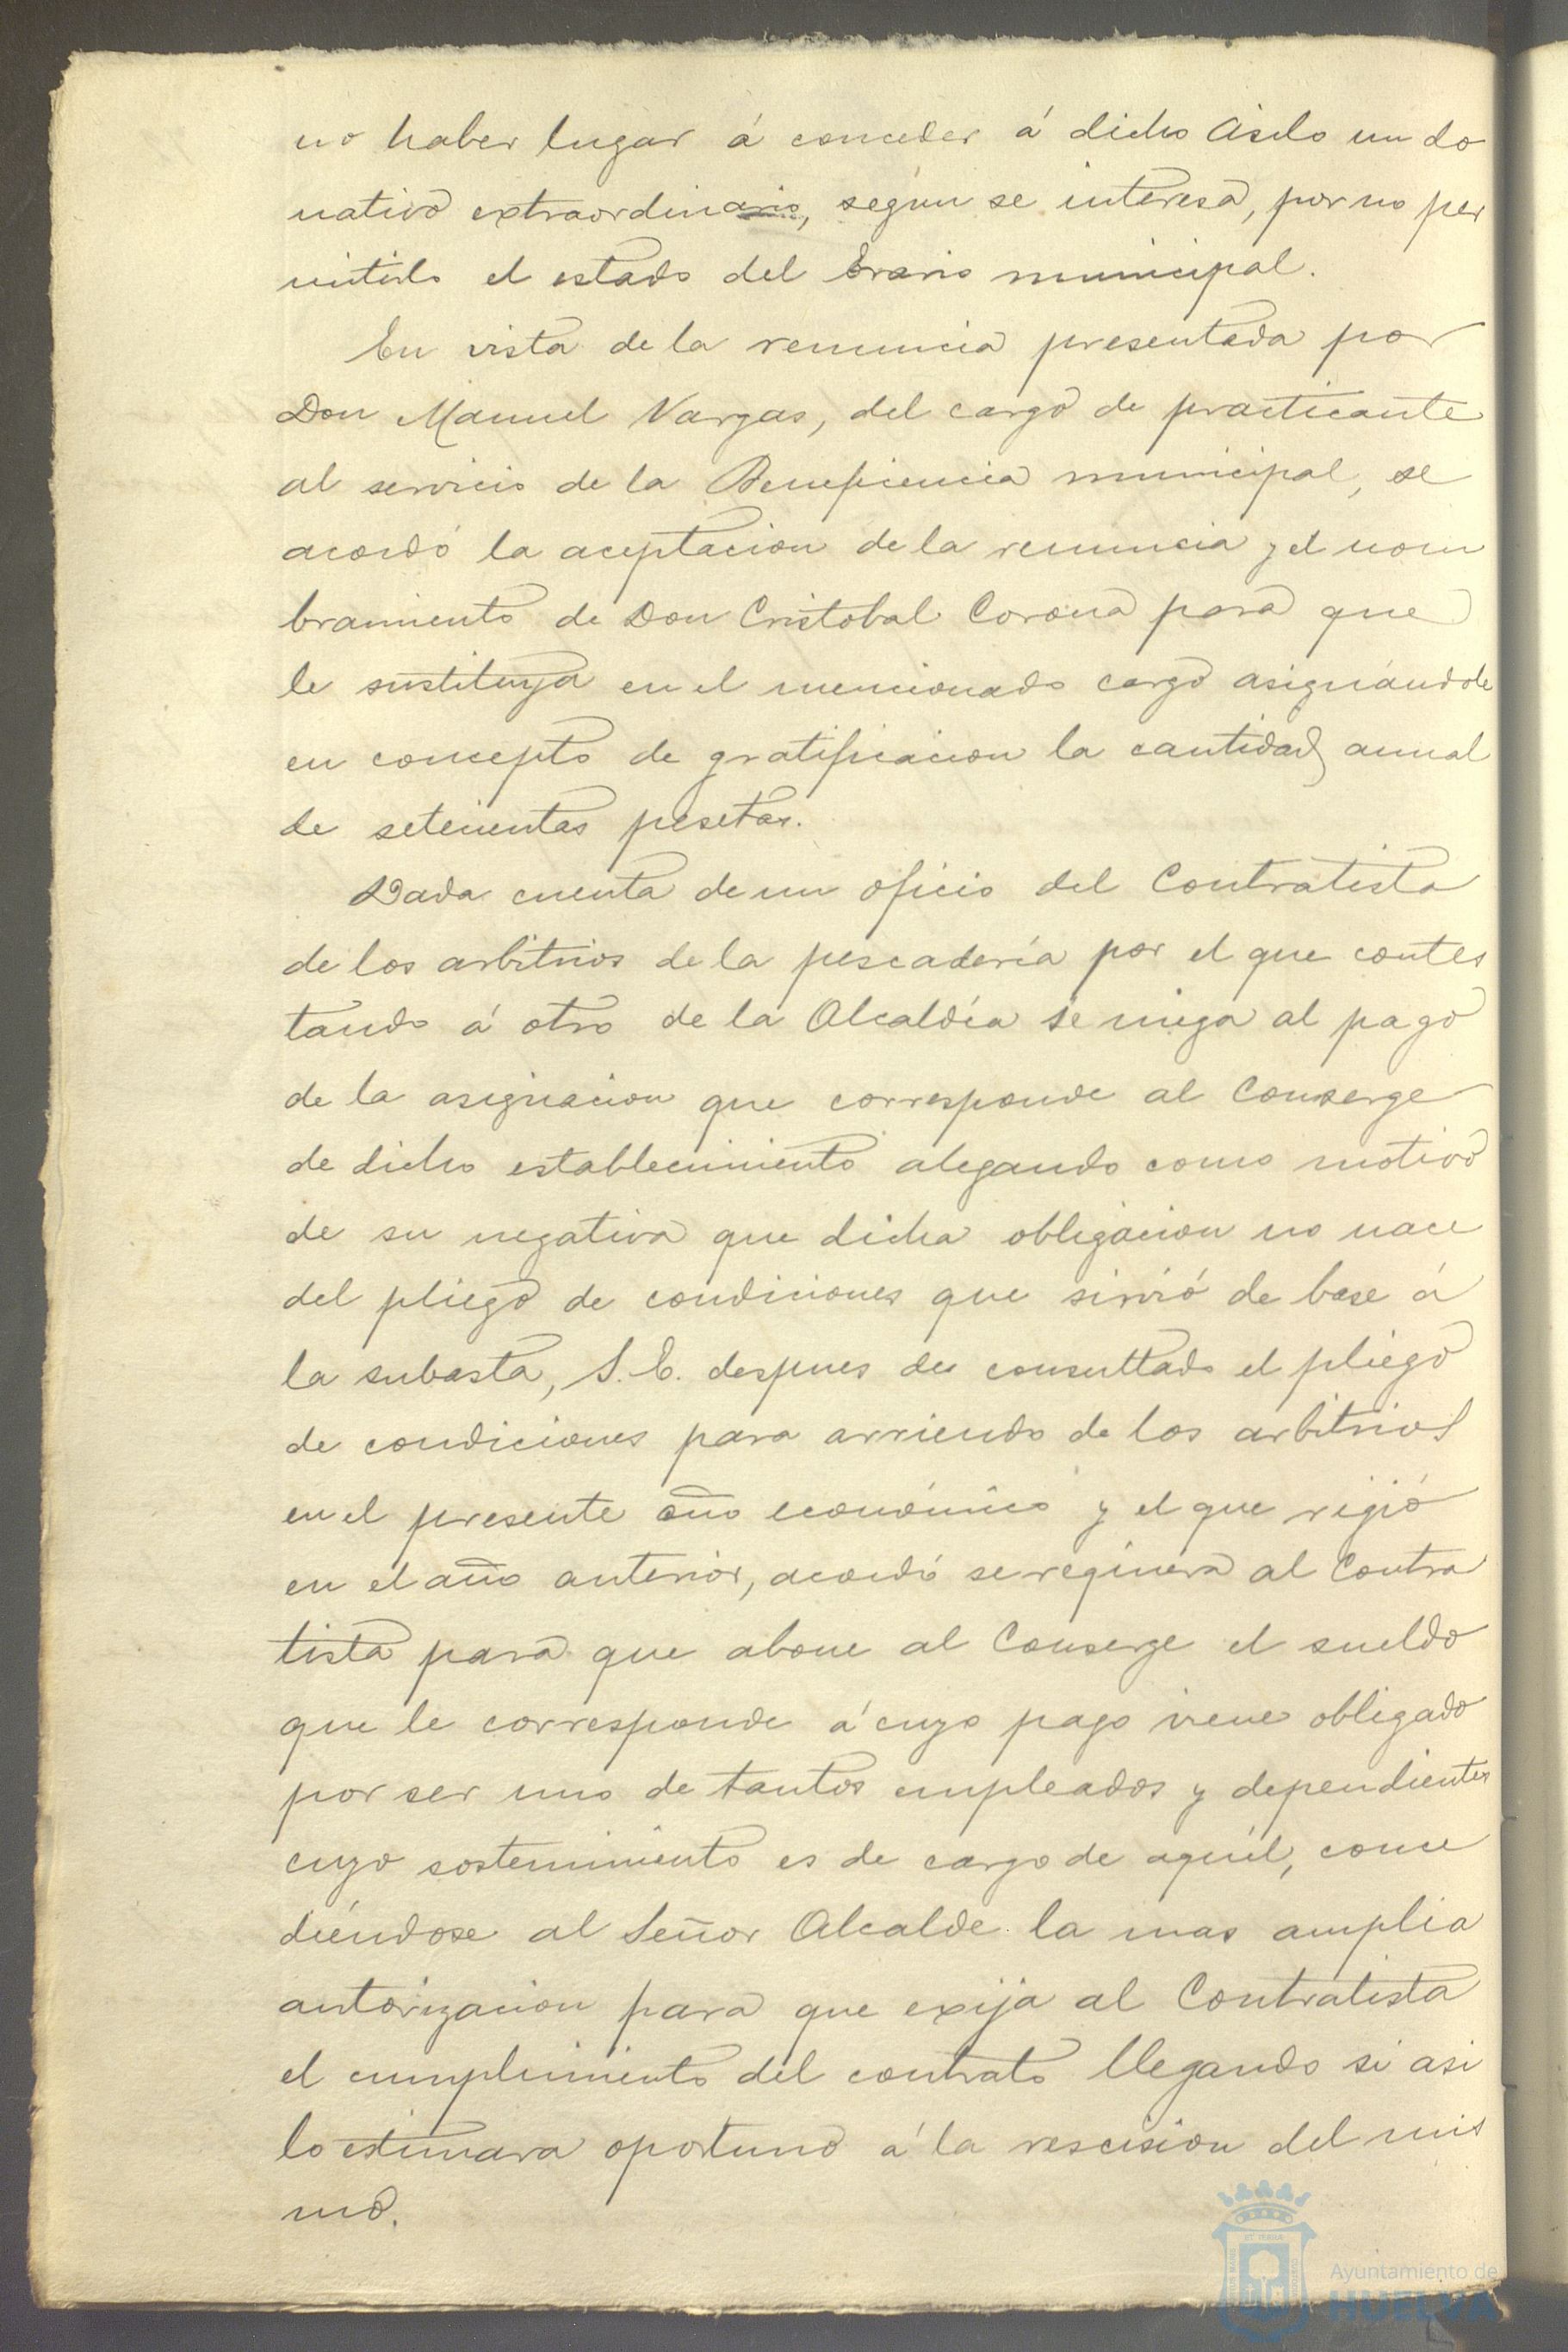 no haber lugar á conceder á dicho Asilo un do
nativo extraordinario, según se interesa, por no per
mitirlo el estado del Erario municipal.
En vista de la renuncia presentada por
Don Manuel Vargas, del cargo de practicante
al servicio de la Beneficencia municipal, se
acordó la aceptacion de la renuncia y el nom
bramiento de Don Cristobal Corona para que
le sustituya en el mencionado cargo asignándole
en concepto de gratificacion la cantidad anual
de setecientas pesetas.
Dada cuenta de un oficio del Contratista
de los arbitrios de la pescadería por el que contes
tando á otro de la Alcaldía se niega al pago
de la asignacion que corresponde al Conserge
de dicho establecimiento alegando como motivo
de su negativa que dicha obligacion no nace
del pliego de condiciones que sirvió de base á
la subasta, S. E. despues de consultado el pliego
de condiciones para arriendo de los arbitrios
en el presente año económico y el que rigió
en el año anterior, acordó se requiera al Contra
tista para que abone al Conserge el sueldo
que le corresponde á cuyo pago viene obligado
por ser uno de tantos empleados y dependientes
cuyo sostenimiento es de cargo de aquél, conce
diéndose al Señor Alcalde la mas amplia
autorizacion para que exija al Contratista
el cumplimiento del contrato llegando si asi
lo estimara oportuno á la rescision del mis
mo.
Ayuntamiento de
HUELVA